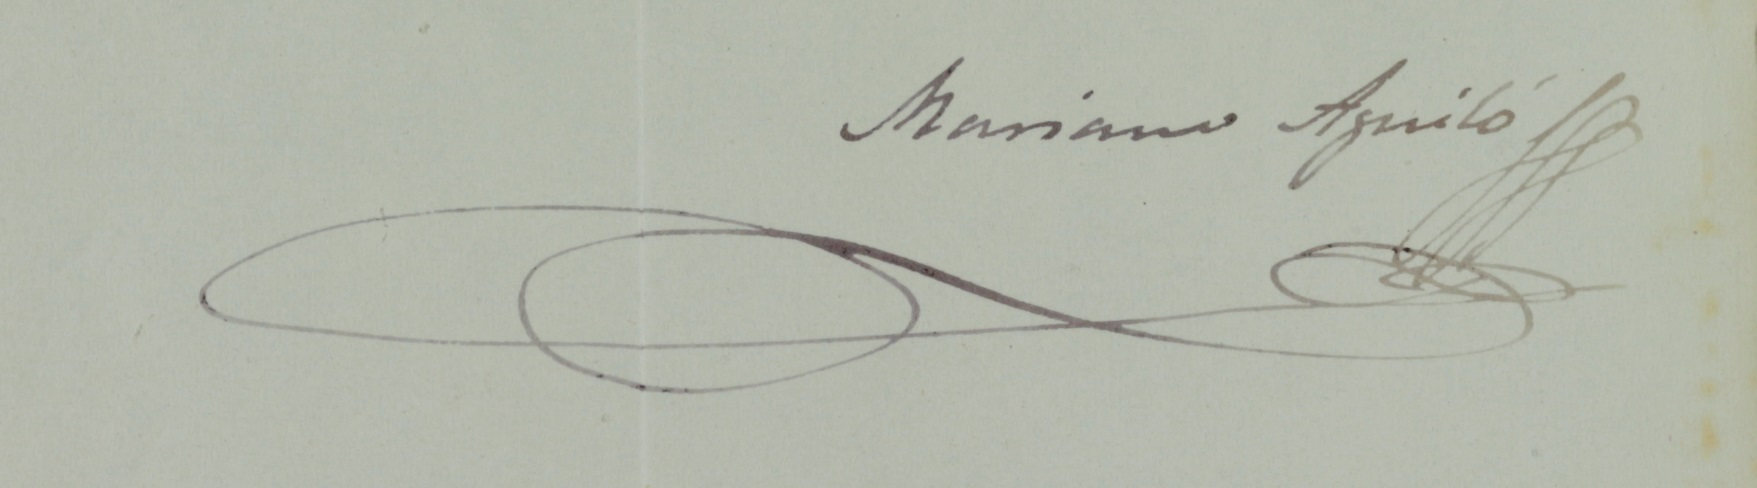 Mariano Aguiló